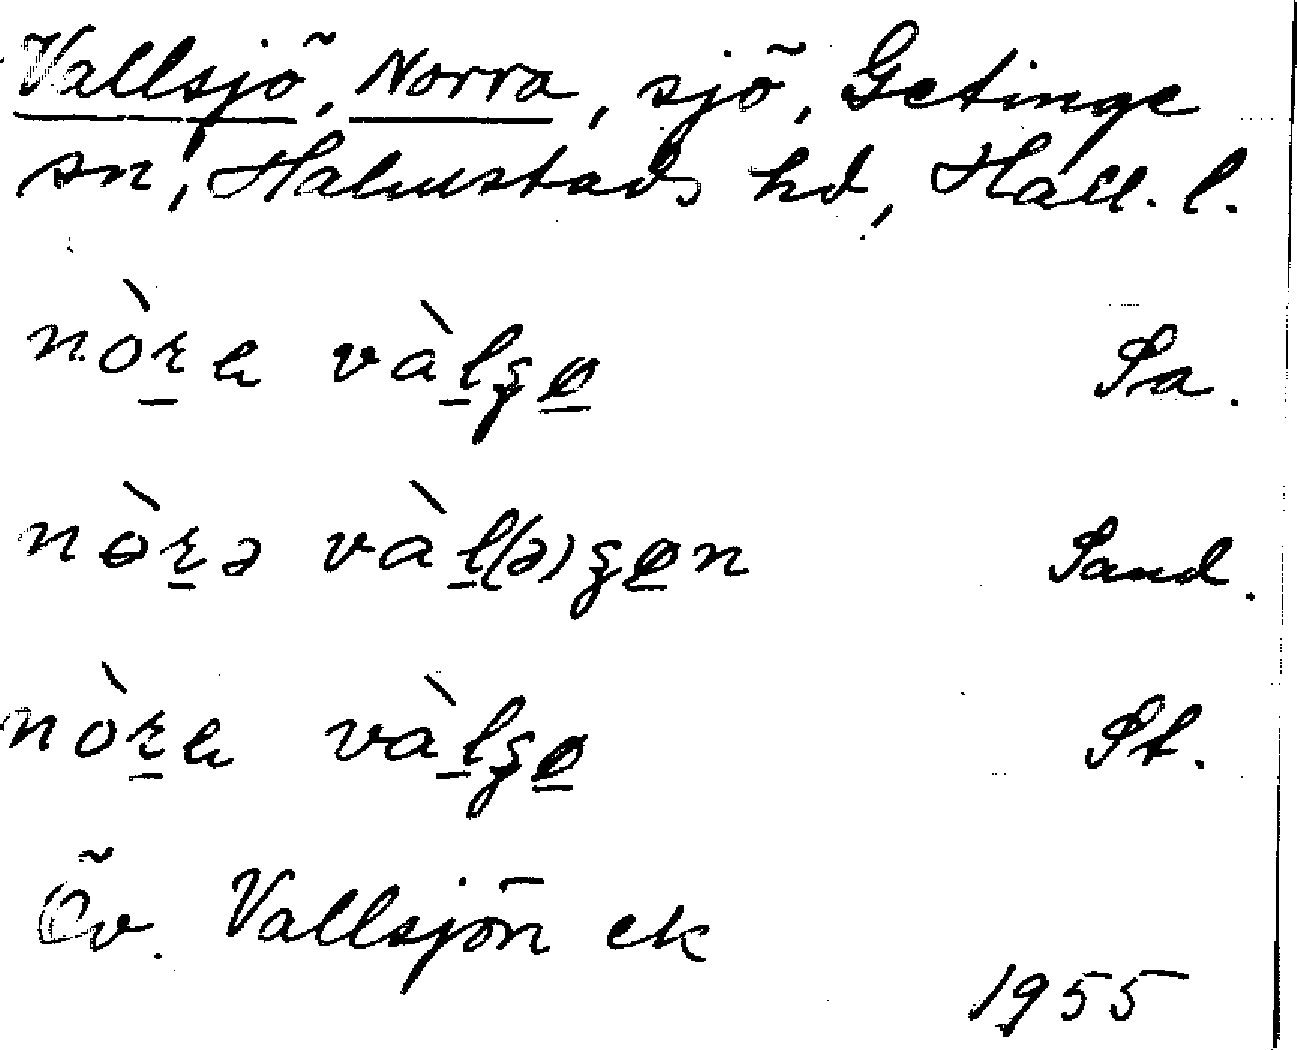 Vallsjö, Norra, sjö, Getinge
sn, Halmstads hd, Hall. l.
nò̱ra vàlʒø Sa.
nòrə vàl(ə)ʒøn Sand.
nòra vàlʒø St.
Öv. Vallsjön ek
1955